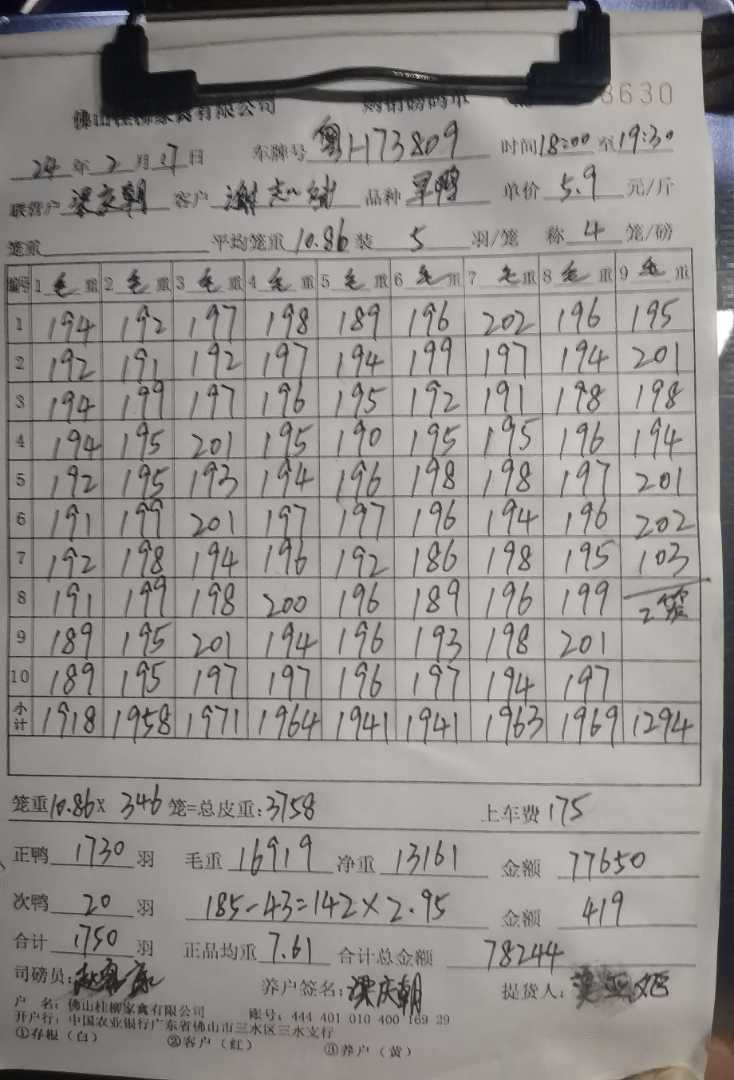 佛山桂柳家禽有限公司 购销磅码单 3630
24年2月27日 车牌号 粤H73809 时间18:00至19:30
联营户 梁庆朝 客户 谢志 品种 旱鸭 单价 5.9 元/斤
笼重 平均笼重 10.86 装 5 羽/笼 称 4 笼/磅
编号 1 毛 重 2 毛 重 3 毛 重 4 毛 重 5 毛 重 6 毛 重 7 毛 重 8 毛 重 9 毛 重
1 194 192 197 198 189 196 202 196 195
2 192 191 192 197 194 199 197 194 201
3 194 199 197 196 195 192 191 198 198
4 194 195 201 195 190 195 195 196 194
5 192 195 193 194 196 198 198 197 201
6 191 199 201 197 197 196 194 196 202
7 192 198 194 196 192 186 198 195 103
8 191 199 198 200 196 189 196 199 2笼
9 189 195 201 194 196 193 198 201
10 189 195 197 197 196 197 194 197
小计 1918 1958 1971 1964 1941 1941 1963 1969 1294
笼重10.86× 346 笼=总皮重:3758 上车费 175
正鸭 1730 羽 毛重 16919 净重 13161 金额 77650
次鸭 20 羽 185-43=142×2.95 金额 419
合计 1750 羽 正品均重 7.61 合计总金额 78244
司磅员: 养户签名:梁庆朝 提货人:
户 名: 佛山桂柳家禽有限公司 账号: 444 401 010 400 169 29
开户行: 中国农业银行广东省佛山市三水区三水支行
①存根（白） ②客户（红） ③养户（黄）